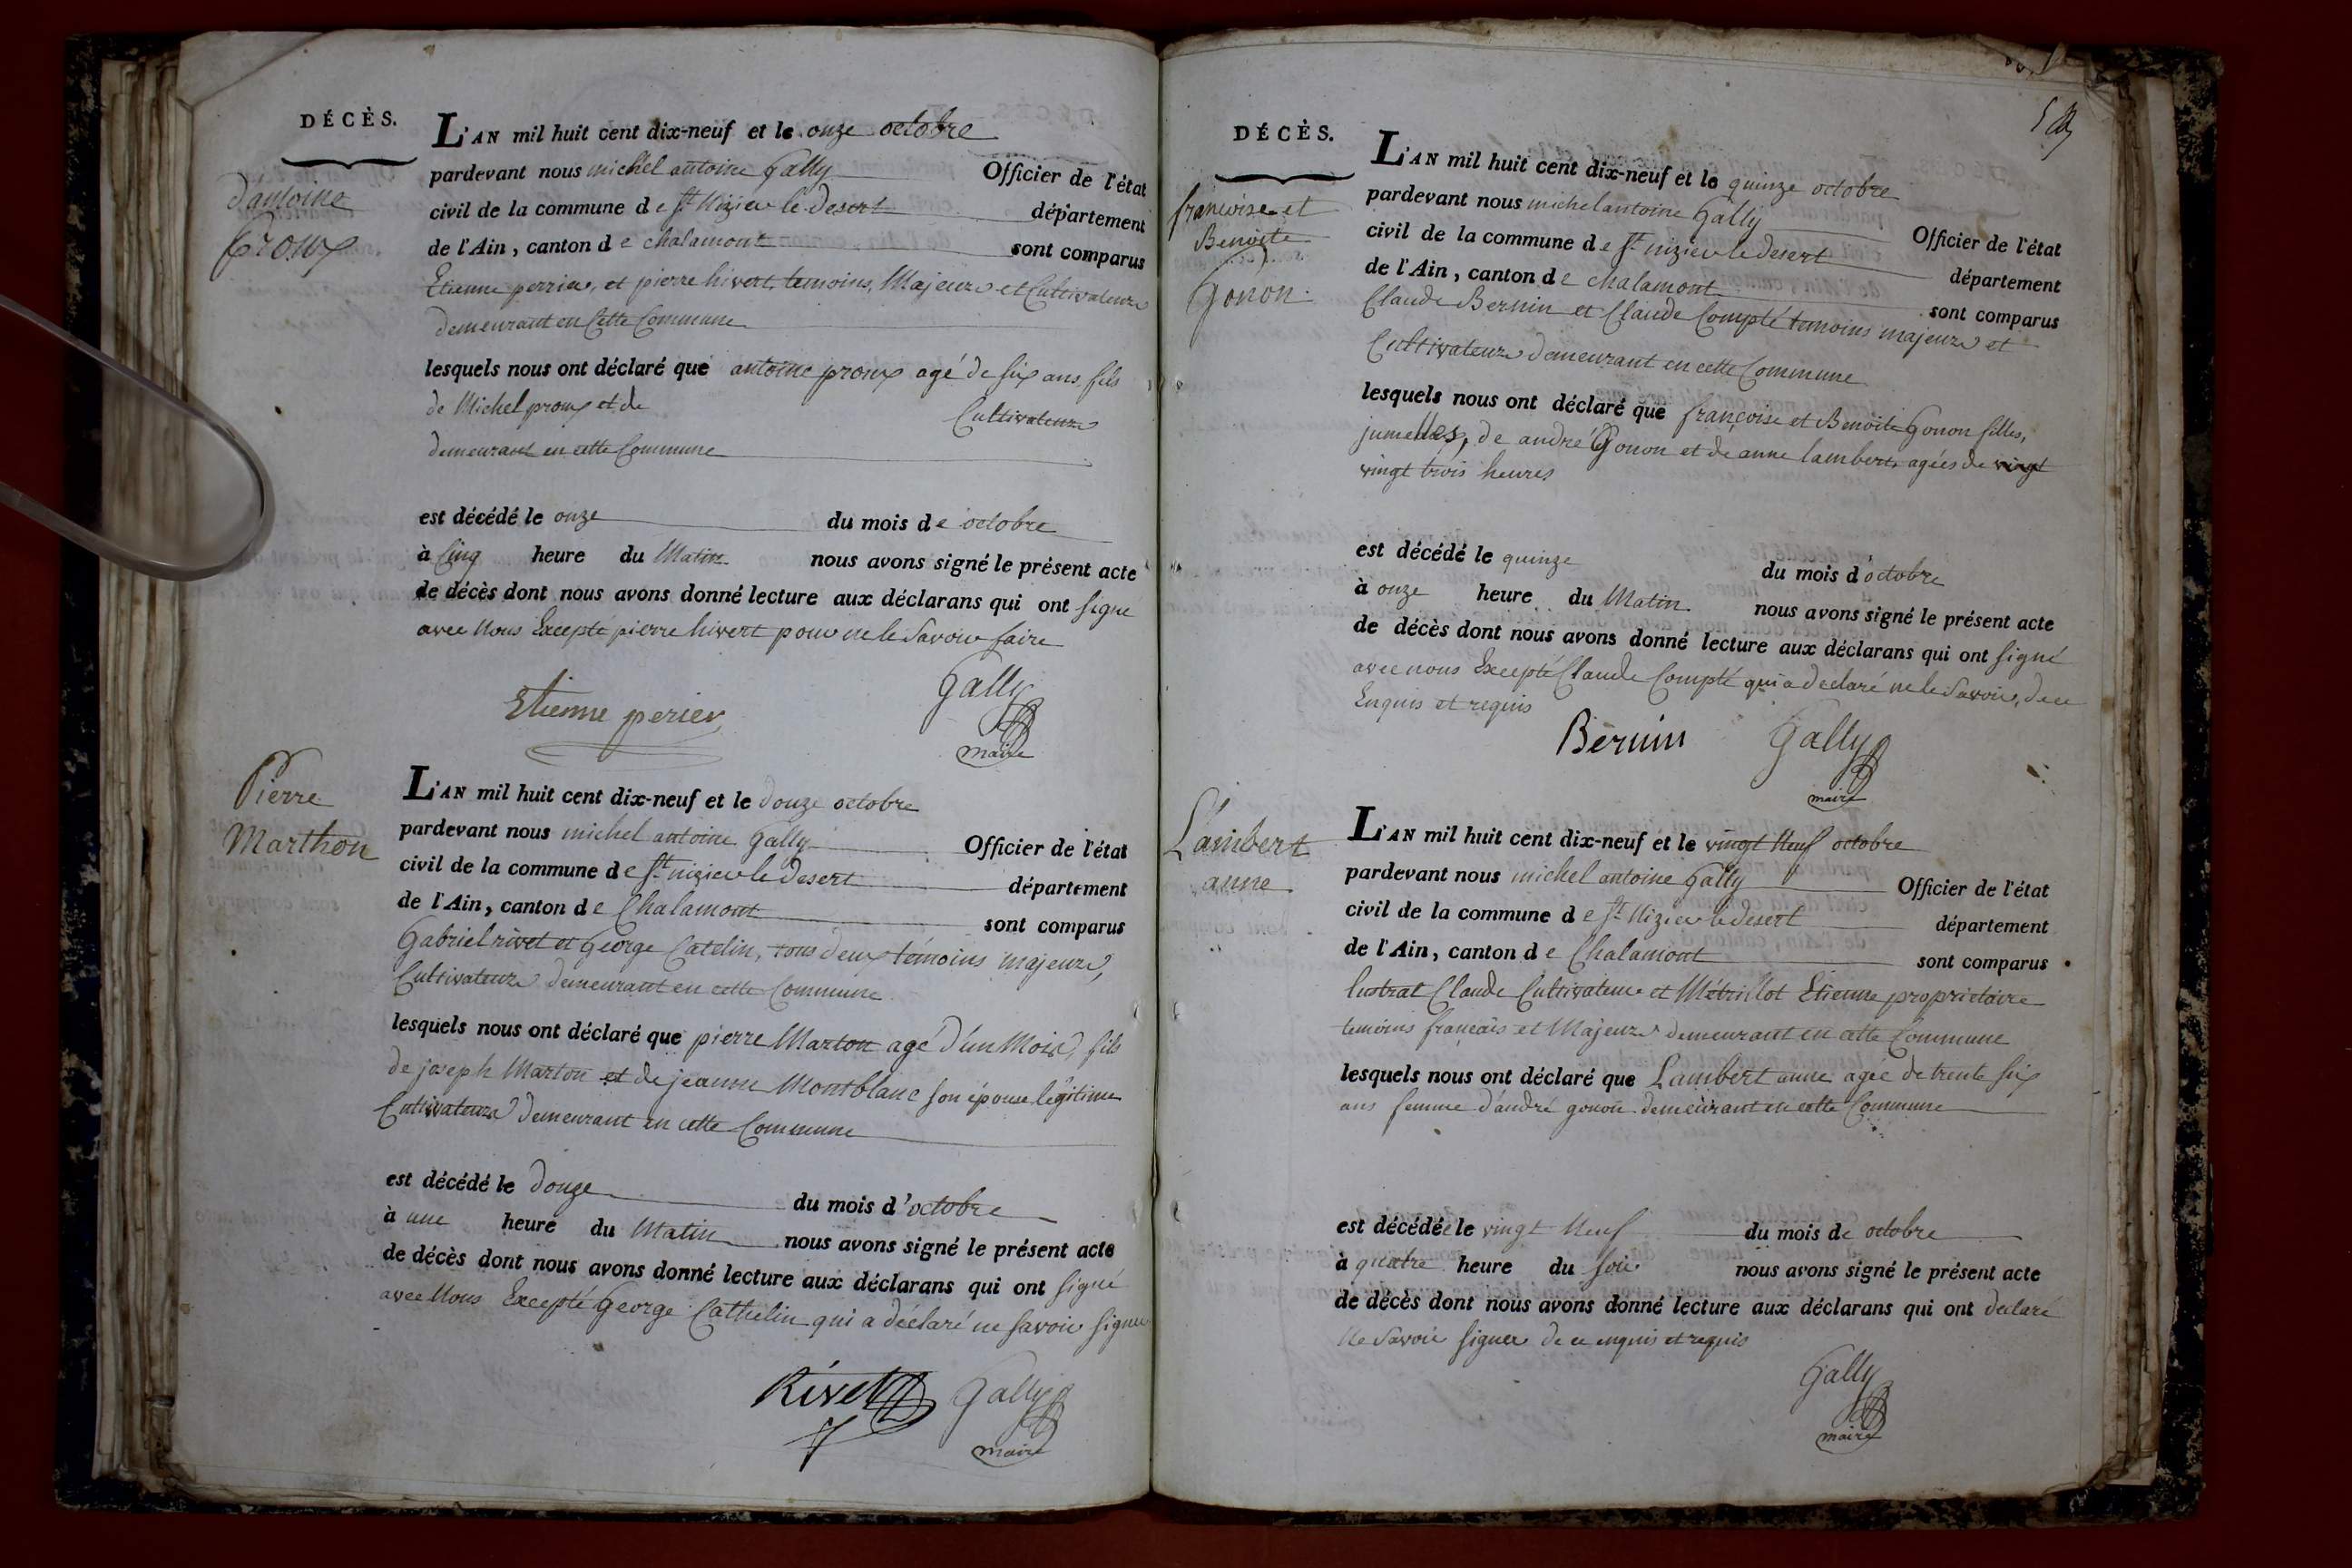 DÉCÈS.
d'antoine
Proux
L'AN mil huit cent dix-neuf et le onze octobre
pardevant nous michel antoine Gally Officier de l'état
civil de la commune de St Nizier le Desert département
de l'Ain, canton de chalamont sont comparus
Etienne perrier, et pierre hivert, temoins, Majeurs et Cultivateurs
demeurant en Cette Commune
lesquels nous ont déclaré que antoine proux agé de six ans fils
de Michel proux et de Cultivateurs
demeurant en cette Commune
est décédé le onze du mois de octobre
à Cinq heure du Matin nous avons signé le présent acte
de décès dont nous avons donné lecture aux déclarans qui ont signé
avec Nous Excepté pierre hivert pour ne le Savoir faire
Etienne perier
Gally
maire
Pierre
Marthon
L'AN mil huit cent dix-neuf et le douze octobre
pardevant nous michel antoine Gally Officier de l'état
civil de la commune de St nizier le Desert département
de l'Ain, canton de Chalamont sont comparus
Gabriel rivet et George Catelin, tous deux témoins majeurs,
Cultivateurs demeurant en cette Commune
lesquels nous ont déclaré que pierre Marton agé d'un Mois, fils
de joseph Marton et de jeanne Montblanc son épouse légitime
Cultivateurs demeurant en cette Commune
est décédé le douze du mois d'octobre
à une heure du Matin nous avons signé le présent acte
de décès dont nous avons donné lecture aux déclarans qui ont signé
avec Nous Excepté George Cathelin qui a déclaré ne savoir signer
Rivet Gally
maire
DÉCÈS.
françoise et
Benoite
Gonon
L'AN mil huit cent dix-neuf et le quinze octobre
pardevant nous michel antoine Gally Officier de l'état
civil de la commune de St nizier le Desert département
de l'Ain, canton de chalamont sont comparus
Claude Bernin et Claude Compté temoins majeurs et
Cultivateurs demeurant en cette Commune
lesquels nous ont déclaré que françoise et Benoite Gonon filles,
jumelles, de andré Gonon et de anne lambert, agées de vingt
vingt trois heures
est décédé le quinze du mois d'octobre
à onze heure du Matin nous avons signé le présent acte
de décès dont nous avons donné lecture aux déclarans qui ont signé
avec nous Excepté Claude Compté qui a declaré ne le Savoir, de ce
Enquis et requis
Bernin Gally
maire
Lambert
anne
L'AN mil huit cent dix-neuf et le vingt Neuf octobre
pardevant nous michel antoine Gally Officier de l'état
civil de la commune de St Nizier le desert département
de l'Ain, canton de Chalamont sont comparus
lustrat Claude Cultivateur et Métrillot Etienne proprietaire
temoins français et Majeurs demeurant en cette Commune
lesquels nous ont déclaré que Lambert anne agée de trente six
ans femme d'andré gonon demeurant en cette Commune
est décédée le vingt Neuf du mois de octobre
à quatre heure du soir nous avons signé le présent acte
de décès dont nous avons donné lecture aux déclarans qui ont declaré
Ne Savoir signer de ce enquis et requis
Gally
maire